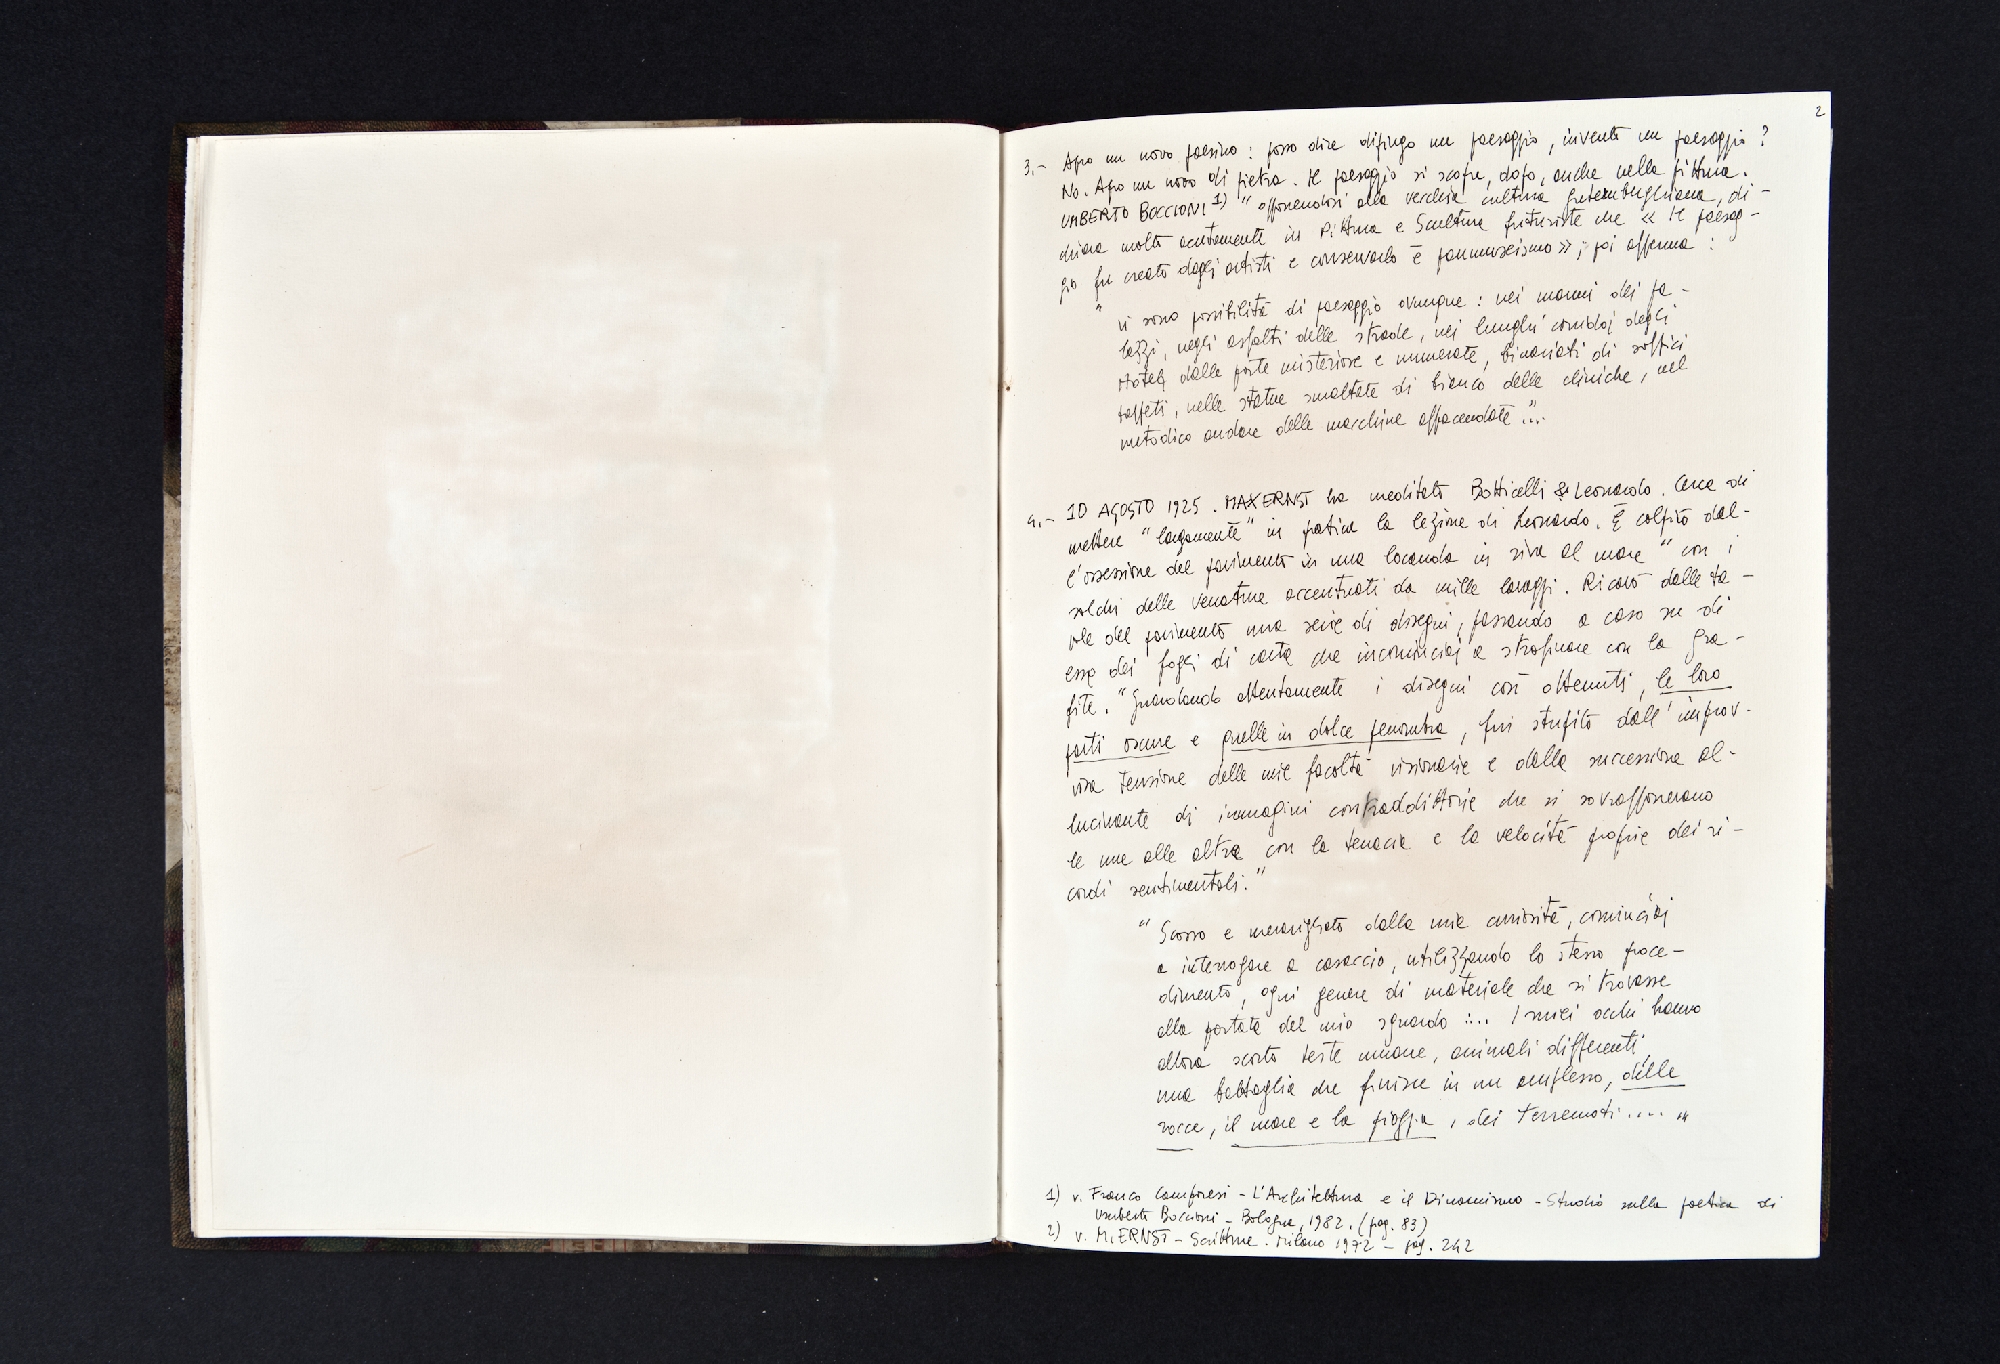 2
3.- Apro un novo paesino : posso dire dipingo un paesaggio, invento un paesaggio ?
No. Apro un novo di pietra. Il paesaggio si scopre, dopo, anche nella pittura.
UMBERTO BOCCIONI 1) "opponendosi alla vecchia cultura gutemberghiana, di-
chiara molto acutamente in Pittura e Scultura futuriste che « Il paesag-
gio fu creato dagli artisti e conservarlo è panmuseismo»; poi afferma :
" vi sono possibilità di paesaggio ovunque : nei marmi dei pa-
lazzi, negli asfalti delle strade, nei lunghi corridoj degli
Hotels dalle porte misteriose e numerate, binariati di soffici
tappeti, nelle statue smaltate di bianco delle cliniche, nel
metodico andare delle macchine affaccendate"...
4.- 10 AGOSTO 1925. MAX ERNST ha meditato Botticelli & Leonardo. Cerca di
mettere "largamente" in pratica la lezione di Leonardo. È colpito dal-
l'ossessione del pavimento in una locanda in riva al mare "con i
solchi delle venature accentuati da mille lavaggi. Ricavò dalle ta-
vole del pavimento una serie di disegni, passando a caso su di
esse dei fogli di carta che incominciai a strofinare con la gra-
fite." Guardando attentamente i disegni così ottenuti, le loro
parti oscure e quelle in dolce penombra, fui stupito dall'improv-
visa tensione delle mie facoltà visionarie e dalla successione al-
lucinante di immagini contraddittorie che si sovrapponevano
le une alle altre con la tenacia e la velocità proprie dei ri-
cordi sentimentali."
"Scosso e meravigliato dalla mia curiosità, cominciai
a interrogare a casaccio, utilizzando lo stesso proce-
dimento, ogni genere di materiale che si trovasse
alla portata del mio sguardo .... I miei occhi hanno
allora scorto teste umane, animali differenti,
una battaglia che finisce in un amplesso, delle
rocce, il mare e la pioggia, dei terremoti .... "
1) v. Franco Camporesi - L'Architettura e il Dinamismo - Studio sulla poetica di
Umberto Boccioni - Bologna, 1982. (pag. 83)
2) v. M. ERNST - Scritture. Milano 1972 - pag. 242